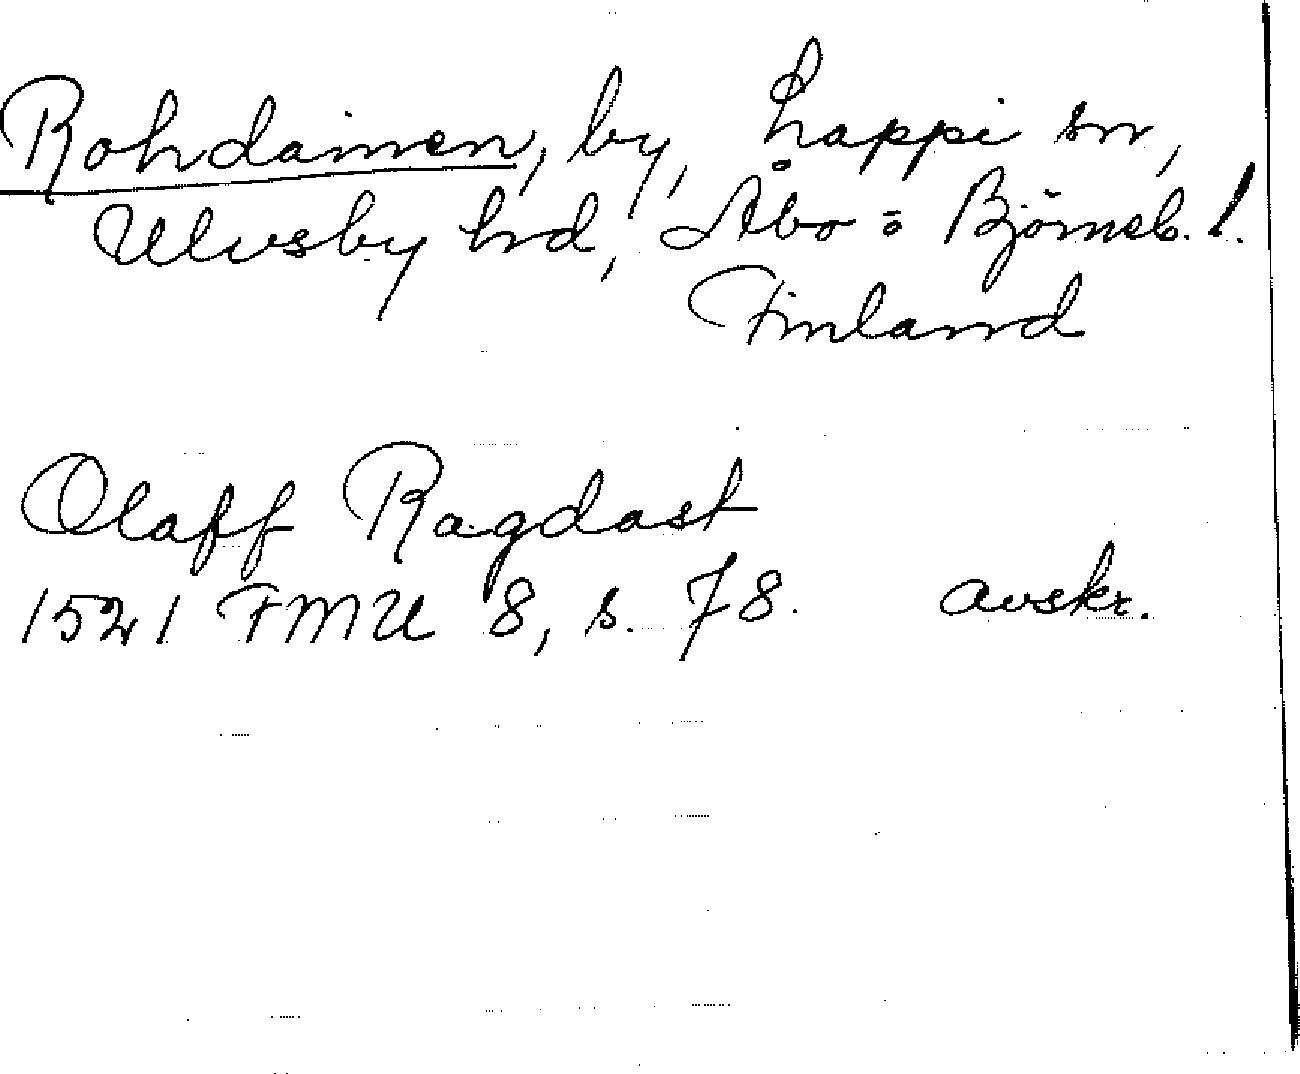 Rohdainen, by, Lappi sn,
Ulvsby hd, Åbo = Björneb. l.
Finland
Olaff Ragdast
1521 FMU 8, s. 78. avskr.